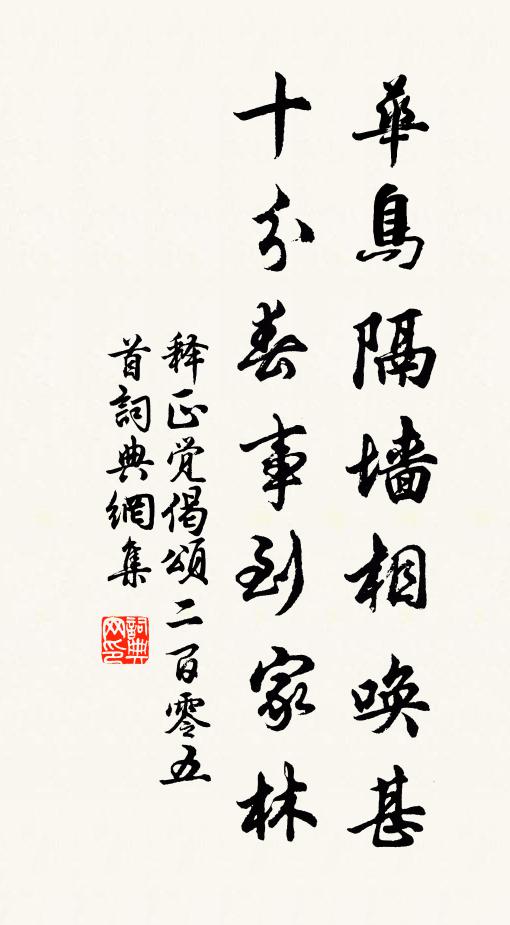 華鳥隔墻相喚甚
十分春事到家林
释正觉偈頌二百零五
首詞典網集
詞典网印